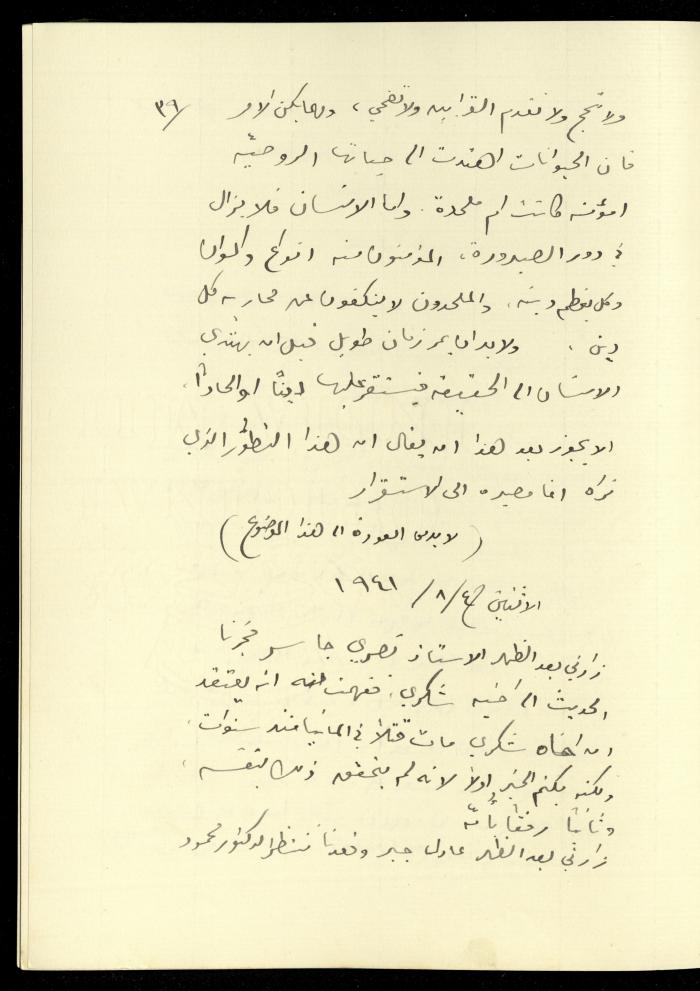 ٣٩/
ولا تحج ولا تقدم القرابين ولا تضحي، ومهما يكن الامر
فان الحيوانات اهتدت الى حياتها الروحيّة
امؤمنة كانت ام ملحدة. واما الانسان فلا يزال
في دور الصيرورة، المؤمنون منه انواع والوان
وكل يعظم دينه، والملحدون لا ينكفون عن محاربة كل
دين. ولا بد ان يمر زمان طويل قبل ان يهتدي
الانسان الى الحقيقة فيستقر عليها ديناً او الحاداً،
الا يجوز بعد هذا ان يقال ان هذا التطوُّر الذي
نراه انما مصيره الى الاستقرار
(لا بد من العودة الى هذا الموضوع)
الاثنين ٤/٨/١٩٤١
زارني بعد الظهر الاستاذ نصري جاسر فجرنا
الحديث الى اخيه شكري، ففهمت منه انه يعتقد
ان اخاه شكري مات قتلاً في المانيا منذ سنوات،
ولكنه يكتم الخبر اولاً لانه لم يتحقق ذلك بنفسه،
وثانياً رفقاً بأمّه
زارني بعد الظهر عادل جبر وقعدنا ننتظر الدكتور محمود